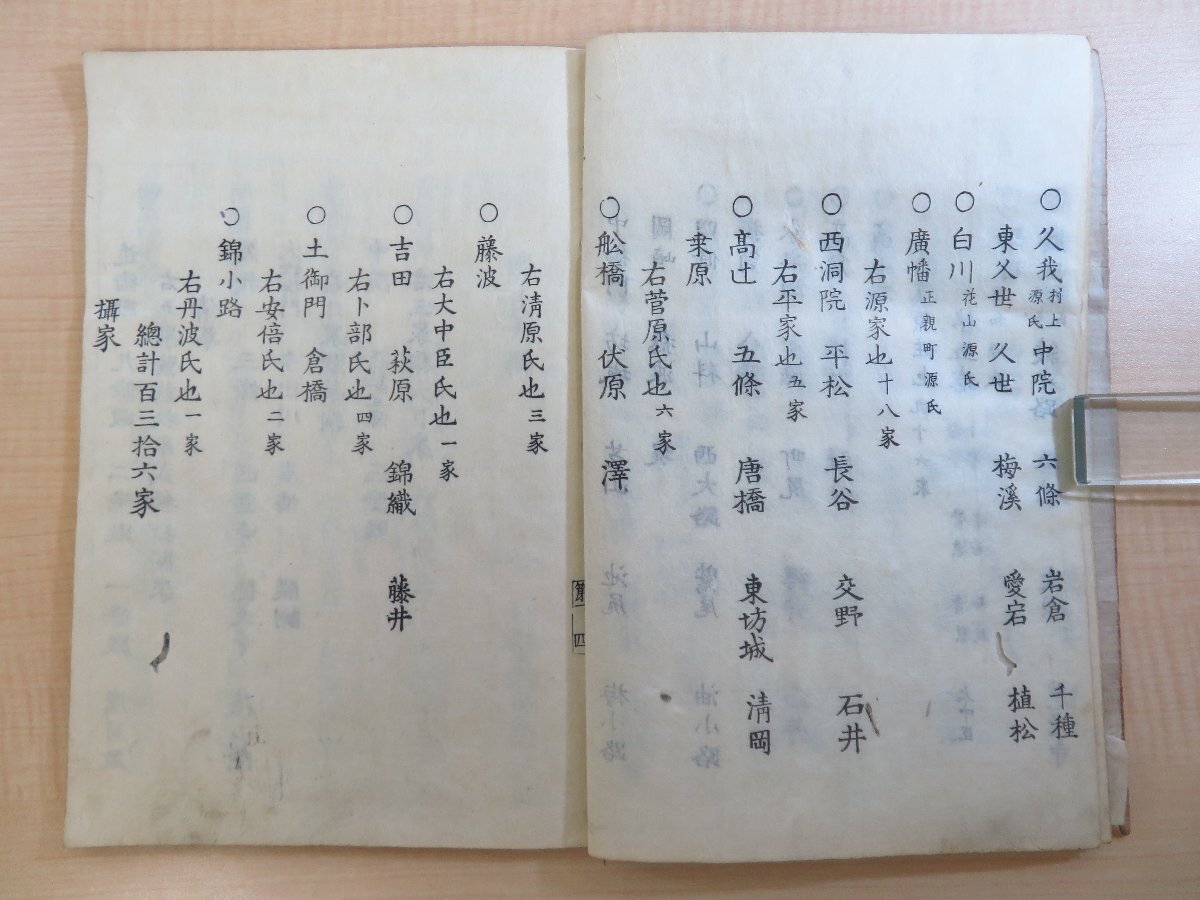 ○久我村上源氏 中院 六條 岩倉 千種
東久世 久世 梅溪 愛宕 植松
○白川花山源氏
○廣幡正親町源氏
右源家也十八家
○西洞院 平松 長谷 交野 石井
右平家也五家
○髙辻 五條 唐橋 東坊城 淸岡
桒原
右菅原氏也六家
○舩橋 伏原 澤
右淸原氏也三家
○藤波
右大中臣氏也一家
○吉田 萩原 錦織 藤井
右卜部氏也四家
○土御門 倉橋
右安倍氏也二家
○錦小路
右丹波氏也一家
總計百三拾六家
攝家
第一 四